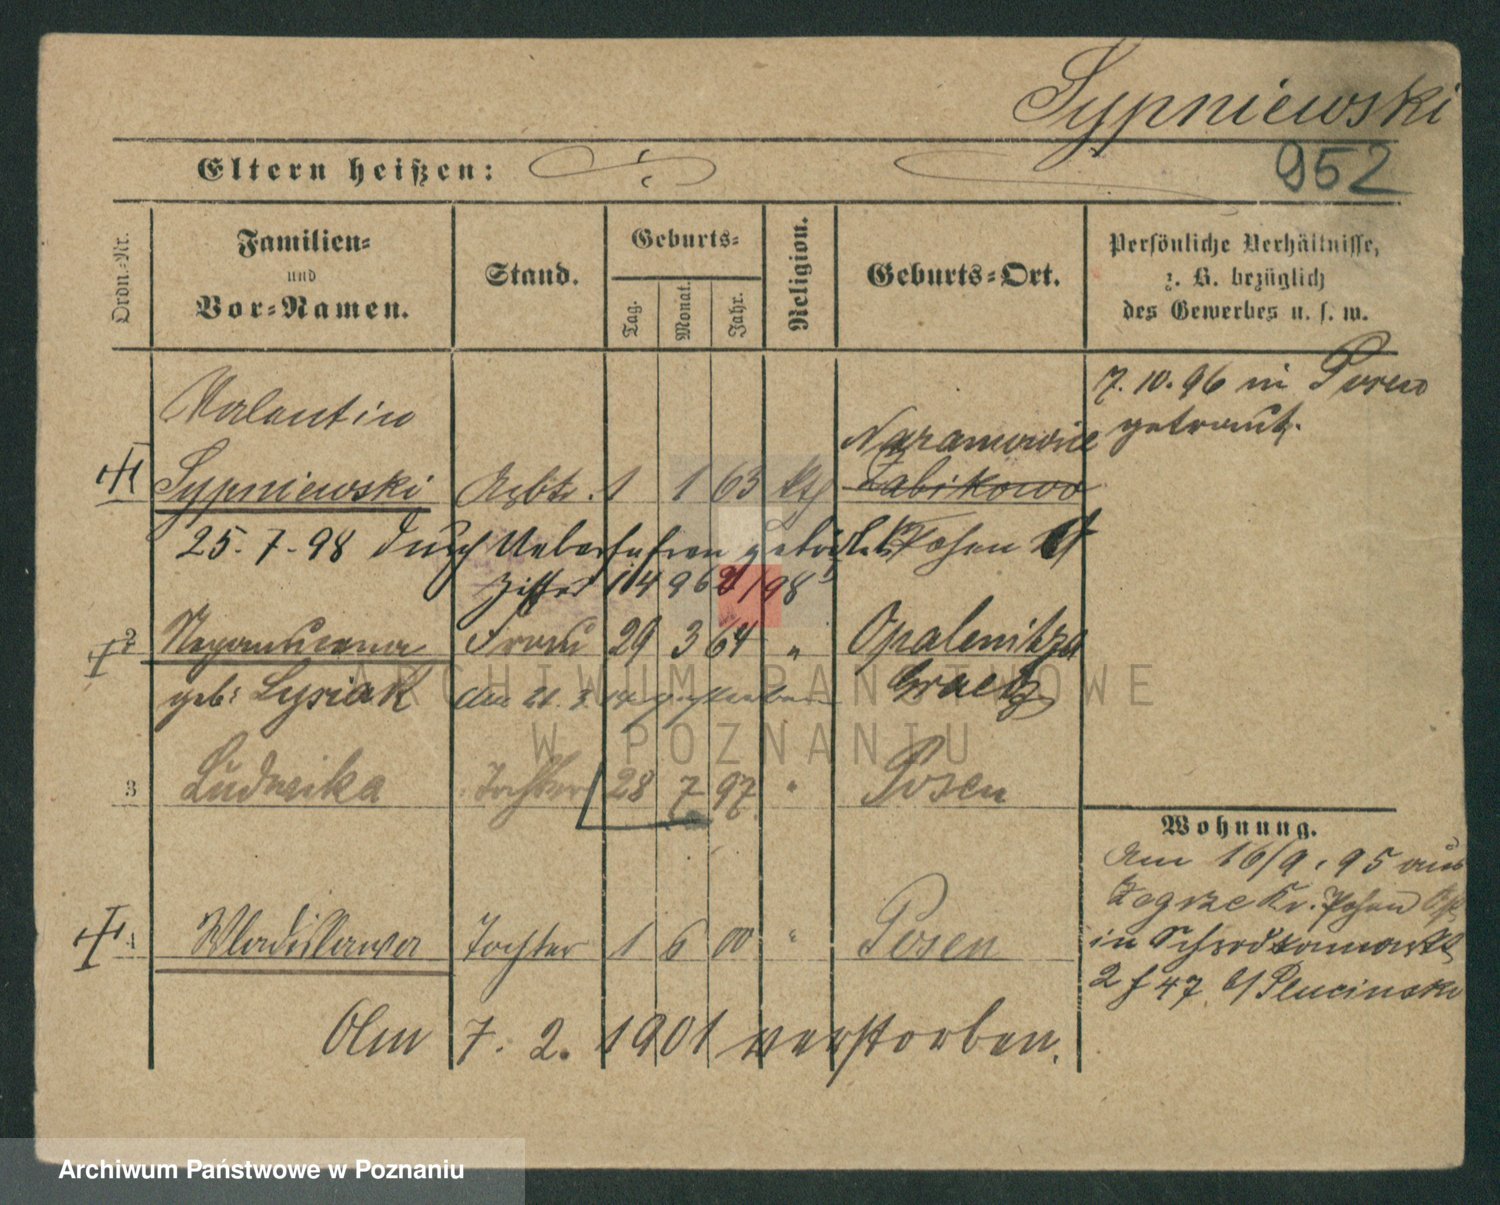 Sypniewski
952
Eltern heißen:
Ordn.-Nr.
Familien-
und
Vor-Namen.
Stand.
Geburts-
Tag.
Monat.
Jahr.
Religion.
Geburts-Ort.
Persönliche Verhältnisse,
z. B. bezüglich
des Gewerbes u. s. w.
7. 10. 96 in Posen
getraut.
Valentin
Naramowice
Sypniewski Arbtr. 1 1 63 kth Żabikowo
25. 7. 98 durch Ueberfahren getödtet Posen
Ziffer 14962/98
2 Nepomucena Frau 29 3 64 " Opalenitza
geb: Lysiak den 21. 3. gestorben Graetz
3 Ludwika Tochter 28 7 97. " Posen
Wohnung.
Am 16/9. 95 aus
Zegrze Kr. Posen
4 Wladislawa Tochter 1 6 00 " Posen
in Schrodkamarkt
2 f 47 b/ Plucinski
Am 7. 2. 1901 verstorben.
ARCHIWUM PAŃSTWOWE
W POZNANIU
Archiwum Państwowe w Poznaniu